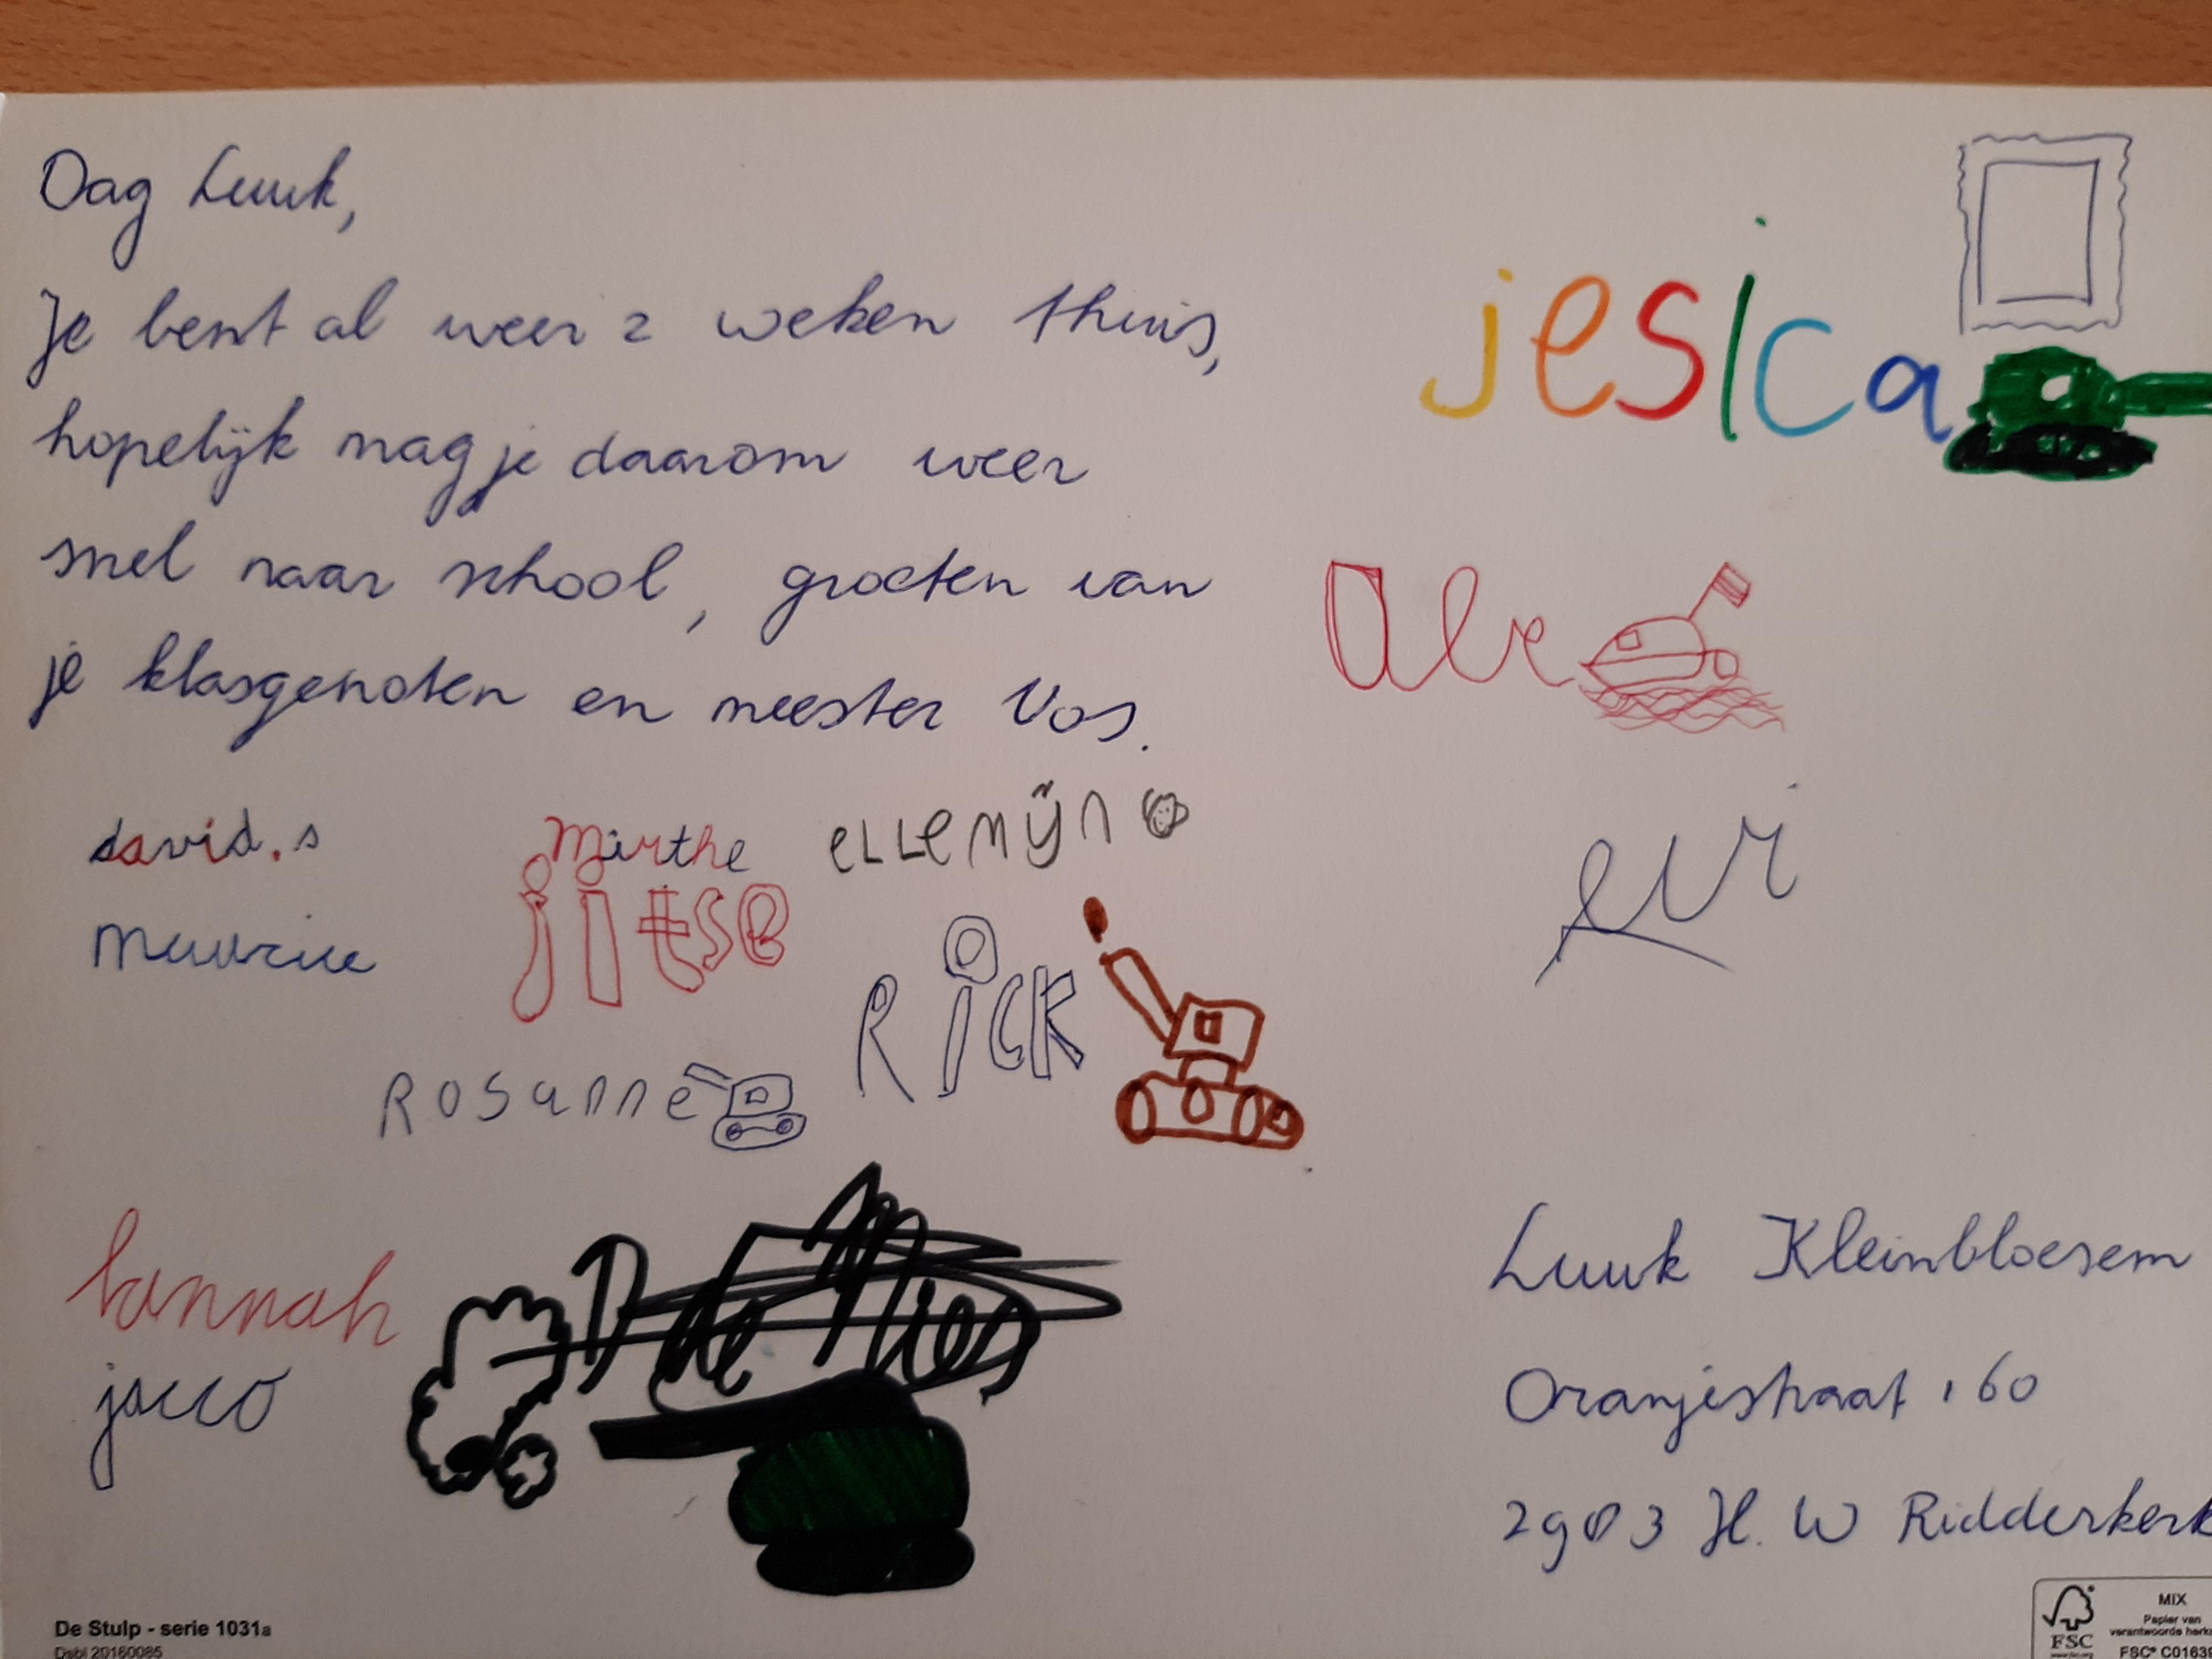 Dag Luuk,
Je bent al weer 2 weken thuis,
hopelijk mag je daarom weer
snel naar school, groeten van
je klasgenoten en meester Vos.
jesica
evi
david.s
Mirthe
ellemijn
Maurice
jitse
Rick
Rosanne
hannah
jacco
Luuk Kleinbloesem
Oranjestraat 160
2903 H.W Ridderkerk
De Stulp - serie 1031a
Dsbl 20160085
MIX
Papier van
FSC